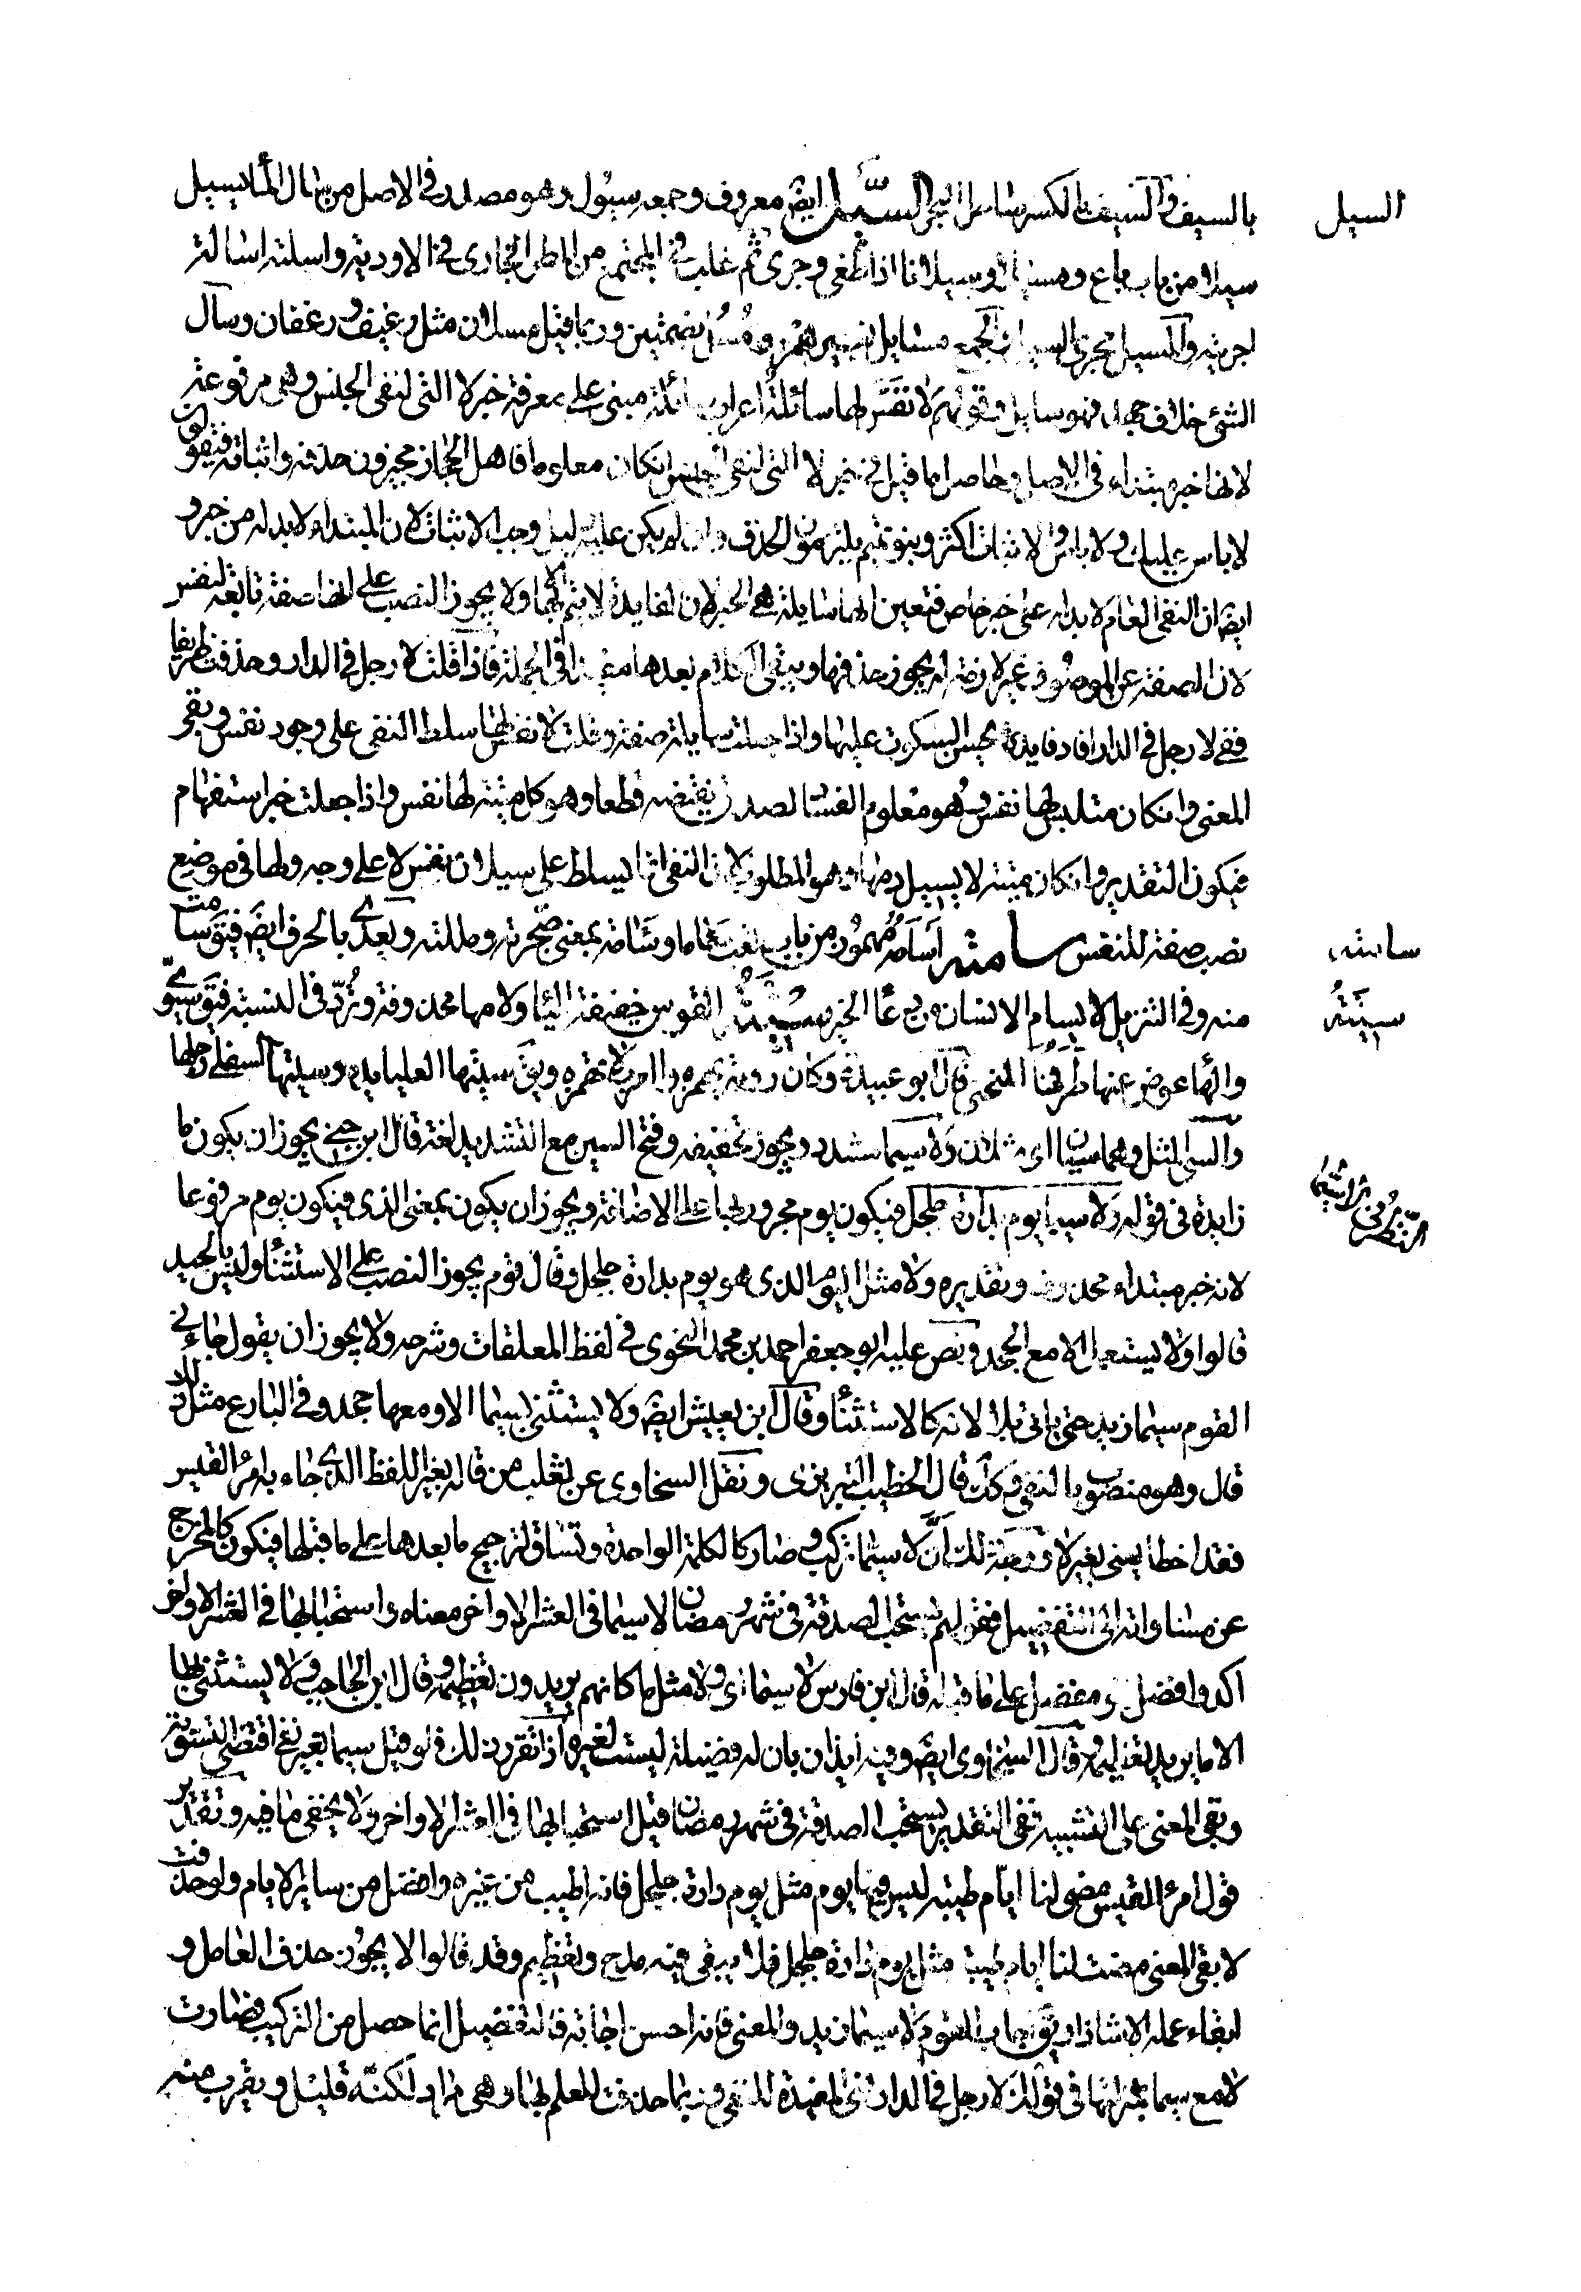 بالسيف والسيف بالكسر ساحل البحر السيل ايضً معروف وجمعه سيول وهو مصدر في الاصل من سال الماء يسيل
السيل
سيلا من باب باع ومسيلا وسيلانا اذا طغى وجرى ثم غلب في المجتمع من المطر الجارى في الاودية واسلته اسالة
اجريته والمسيل مجرى السيل والجمع مسايل بغير همز ومسل بضمتين وربما قيل مسلان مثل رغيف ورغفان وسال
الشئ خلاف جمد فهو سايل وقولهم لا نفس لها سائلة اعراب سائلة مبنى على معرفة خبر لا التى لنفى الجنس وهى مرفوعة
لانها خبر مبتداء في الاصل وحاصل ما قيل في خبر لا التى لنفى الجنس انكان معلوما فاهل الحجاز يجيزون حذفه واثباته فيقولون
لا باس عليك ولا باس والاثبات اكثر وبنو تميم يلتزمون الحذف وان لم يكن عليه دليل وجب الاثبات لان المبتداء لا بد له من خبر و
ايضً ان النفى العام لا يدل على خبر خاص فتعين انها سايلة هى الخبر لان الفايدة لا يتم الا بها ولا يجوز النصب على انها صفة تابعة لنفس
لان الصفة عن الموصوف غير لازمة له يجوز حذفها ويبقى الكلام بعدها مفيدا في الجملة فاذا قلت لا رجل في الدار وحذفت ظريفا
بقى لا رجل في الدار افاد فايدة يحسن السكوت عليها واذا جعلت سايلة صفة وقلت لا نفس لها سلط النفى على وجود نفس وبقى
المعنى وانكان ميتة ليس لها نفس وهو معلوم الفساد لصدق نقيضه قطعا وهو كل ميتة لها نفس واذا جعلت خبرا استقام
فيكون التقدير وانكان ميتة لا يسيل دمها وهو المطلوب لان النفى انما يسلط على سيلان نفس لا على وجود ولها في موضع
نصب صفة للنفس سامته اسامه مهموز من باب تعب سأما وسآمة بمعنى ضجرته ومللته ويعدى بالحرف ايضً فيقَ سامت
سامته
منه وفي التنزيل لا يسام الانسان من دعاء الخير سيتة القوس خفيفة الياء ولامها محذوفة وترد في النسبة فيقَ سيوى
سيتة
والهاء عوض عنها طرفها المنحنى قال ابو عبيدة وكان رؤبة يهمزه والعرب لا تهمزه ويقَ سيتها العليا يدها وسيتها السفلى رجلها
والسى المثل وهما سيان اى مثلان ولا سيما مشدد ويجوز تخفيفه وفتح السين مع التشديد لغة قال ابن جنى يجوز ان يكون ما
زايدة في قوله ولا سيما يوم بدارة جلجل فيكون يوم مجرورا بها على الاضافة ويجوز ان يكون بمعنى الذى فيكون يوم مرفوعا
النظر في لا سيما
لانه خبر مبتداء محذوف وتقديره ولا مثل اليوم الذى هو يوم بدارة جلجل وقال قوم يجوز النصب على الاستثناء وليس بالجيد
قالوا ولا يستعمل الا مع الجحد ونص عليه ابو جعفر احمد بن محمد النحوى في لفظ المعلقات وشرحه ولا يجوز ان يقول جاءنى
القوم سيما زيد حتى ياتى بلا لانه كالاستثناء وقال ابن يعيش ايضً ولا يستثنى بسيما الا ومعها جحد وفي البارع مثل ذلك
قال وهو منصوب بالنفى وكك قال الخطيب التبريزى ونقل السخاوى عن ثعلب من قاله بغير اللفظ الذى جاء به امرؤ القيس
فقد اخطأ يعنى بغير لا ووجه ذلك ان لا سيما تركيب وصار كالكلمة الواحدة وتساق لترجيح ما بعدها على ما قبلها فيكون كالمخرج
عن مساواته الى التفضيل فقولهم يستحب الصدقة في شهر رمضان لا سيما في العشر الاواخر معناه واستحبابها في العشر الاواخر
اكد وافضل ومفضل على ما قبله قال ابن فارس لا سيما اى ولا مثل ما كانهم يريدون تعظيمه وقال ابن الحاجب ولا يستثنى بها
الا ما يريد تعظيمه وقال السخاوى ايضً وفيه ايذان بان له فضيلة ليست لغيره اذا تقرر ذلك فلو قيل سيما بغير نفى اقتضى التسوية
وبقى المعنى على التشبيه فيبقى التقدير يستحب الصدقة في شهر رمضان مثل استحبابها في العشر الاواخر ولا يخفى ما فيه وتقدير
قول امرؤ القيس مضى لنا ايام طيبة ليس فيها يوم مثل يوم دارة جلجل فانه اطيب من غيره وافضل من ساير الايام ولو حذفت
لا بقى المعنى مضت لنا ايام طيبة مثل يوم دارة جلجل فلا يبقى فيه مدح وتعظيم وقد قالوا لا يجوز حذف العامل و
ابقاء عمله الا شاذا ويقَ اجاب القوم لا سيما زيد والمعنى فانه احسن اجابة فالتفضيل انما حصل من التركيب فصارت
لا مع سيما بمنزلتها في قولك لا رجل في الدار فهى المفيدة للنفى وربما حذفت للعلم بها وهى مراده لكنه قليل ويقرب منه